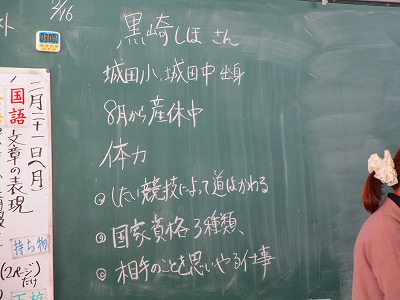 2/16
黒崎しほさん
城田小、城田中出身
8月から産休中
体力
したい競技によって道はかわる
国家資格3種類、
相手のことを思いやる仕事
二月二十一日(月)
国語
文章の表現
持ち物
(2ページだけ